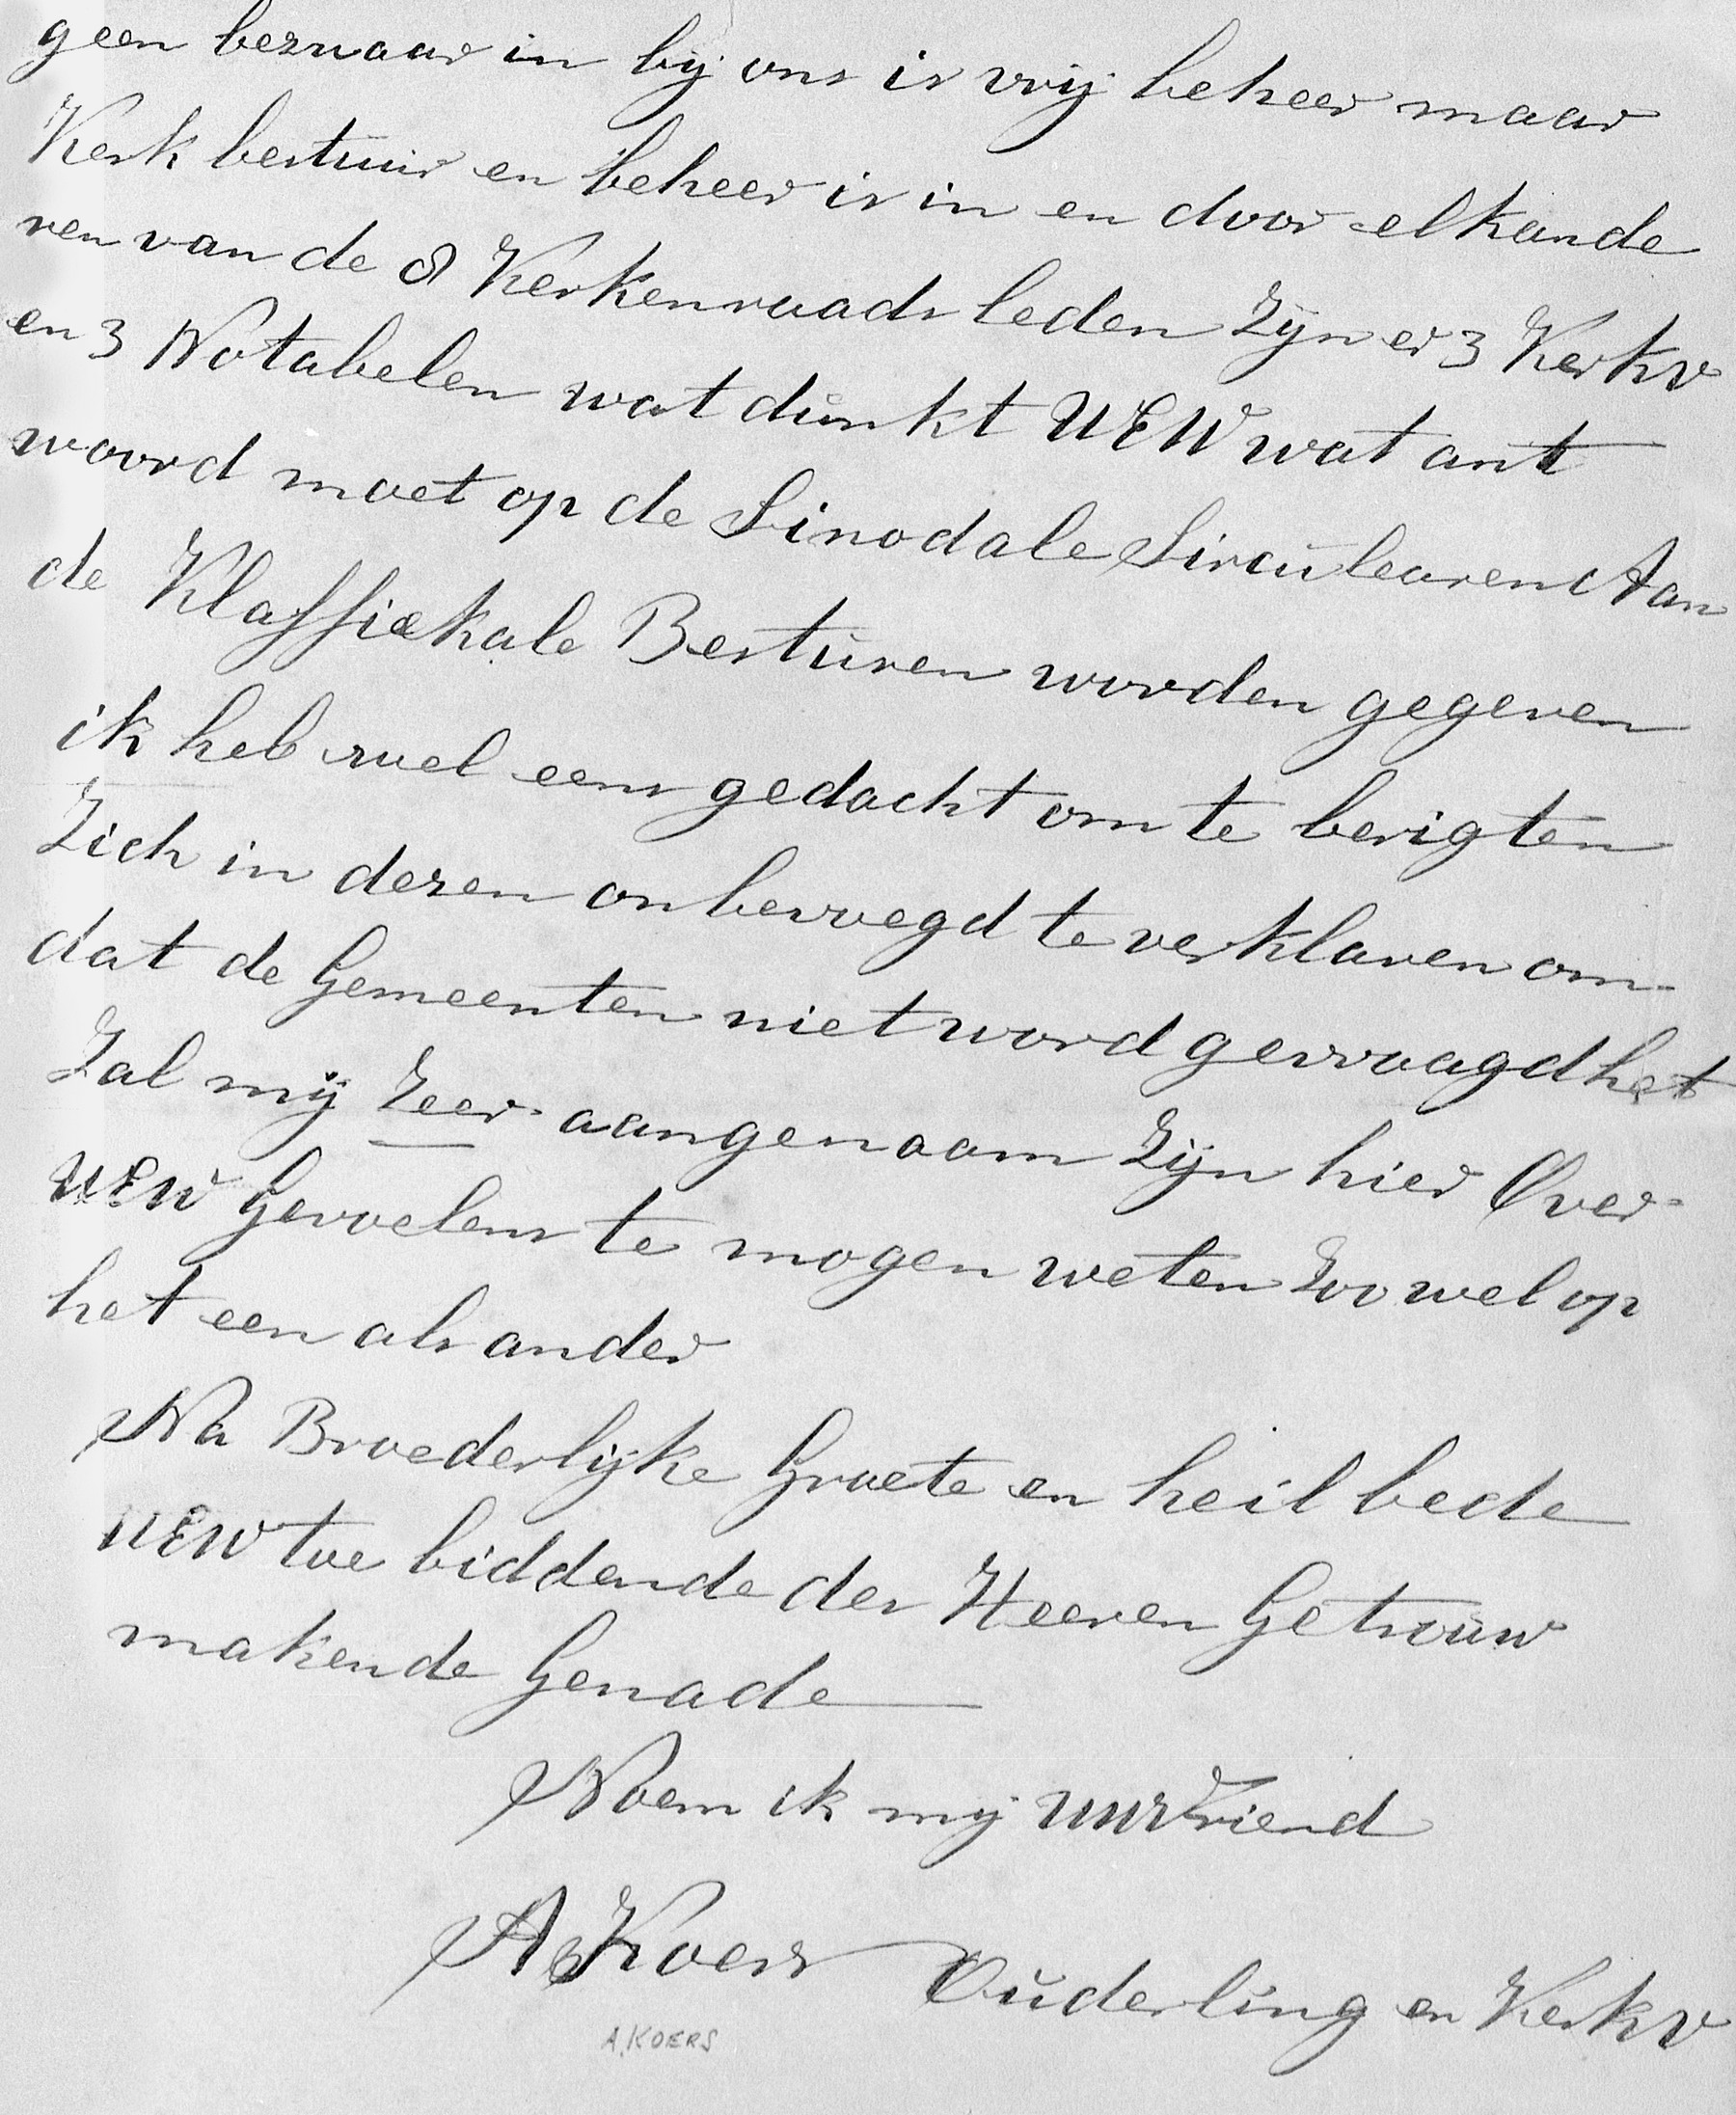 geen bezwaar in bij ons is vrij beheer maar
Kerk bestuur en beheer is in en door elkande
ren van de 8 Kerkenraads leden zijn er 3 Kerkv
en 3 Notabelen wat dunkt UEW wat ant
woord moet op de Sinodale Sirculearen Aan
de Klassiekale Besturen worden gegeven
ik heb wel eens gedacht om te berigten
Zich in dezen onbevoegd te verklaren om-
dat de Gemeenten niet word gevraagd het
Zal mij Zeer aangenaam Zijn hier Over
UEW Gevoelens te mogen weten Zoo wel op
het een als ander
Na Broederlijke Groete en heil bede
UEW toe biddende des Heeren Getrouw
makende Genade
Noem ik mij UW Vriend
A Koers Ouderling en Kerkv
A. KOERS